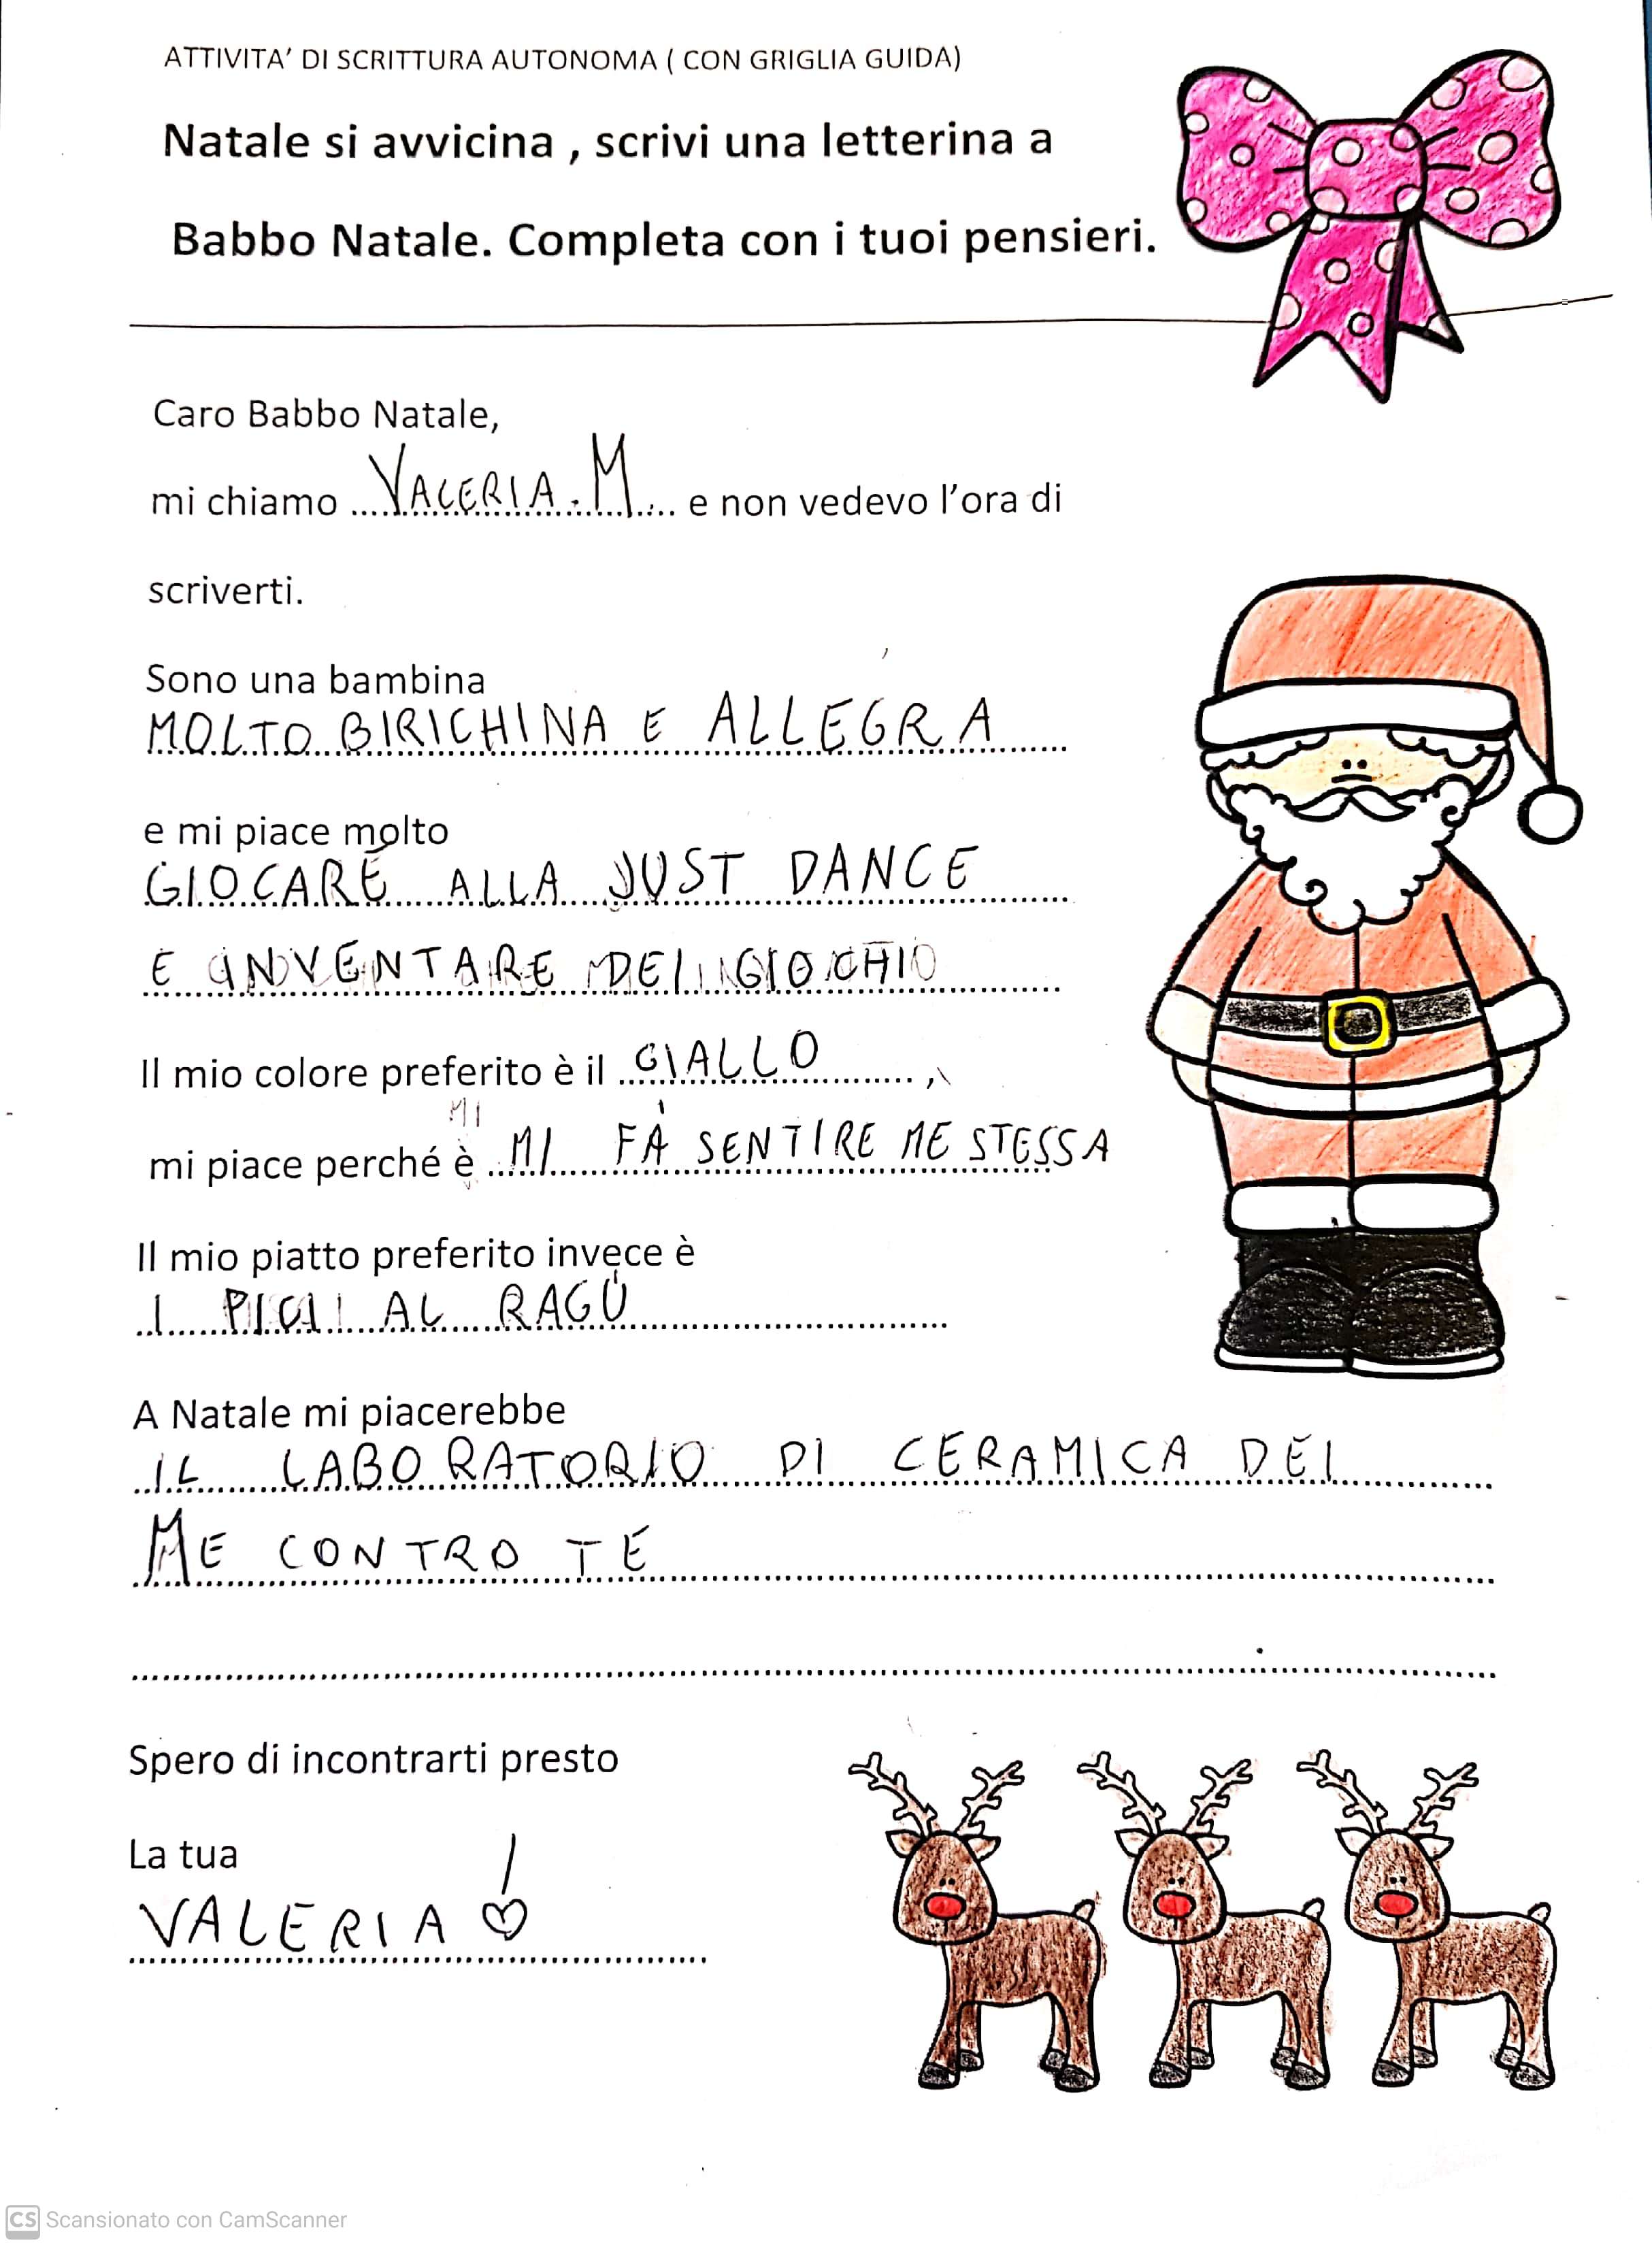 ATTIVITA' DI SCRITTURA AUTONOMA ( CON GRIGLIA GUIDA)
Natale si avvicina , scrivi una letterina a
Babbo Natale. Completa con i tuoi pensieri.
Caro Babbo Natale,
mi chiamo ....VALERIA.M.... e non vedevo l'ora di
scriverti.
Sono una bambina
MOLTO BIRICHINA E ALLEGRA
e mi piace molto
GIOCARE ALLA JUST DANCE
E INVENTARE DEI GIOCHI
Il mio colore preferito è il GIALLO ,
MI
mi piace perché è MI FÀ SENTIRE ME STESSA
Il mio piatto preferito invece è
I PICI AL RAGÙ
A Natale mi piacerebbe
IL LABORATORIO DI CERAMICA DEI
ME CONTRO TE
Spero di incontrarti presto
La tua
VALERIA !
CS Scansionato con CamScanner